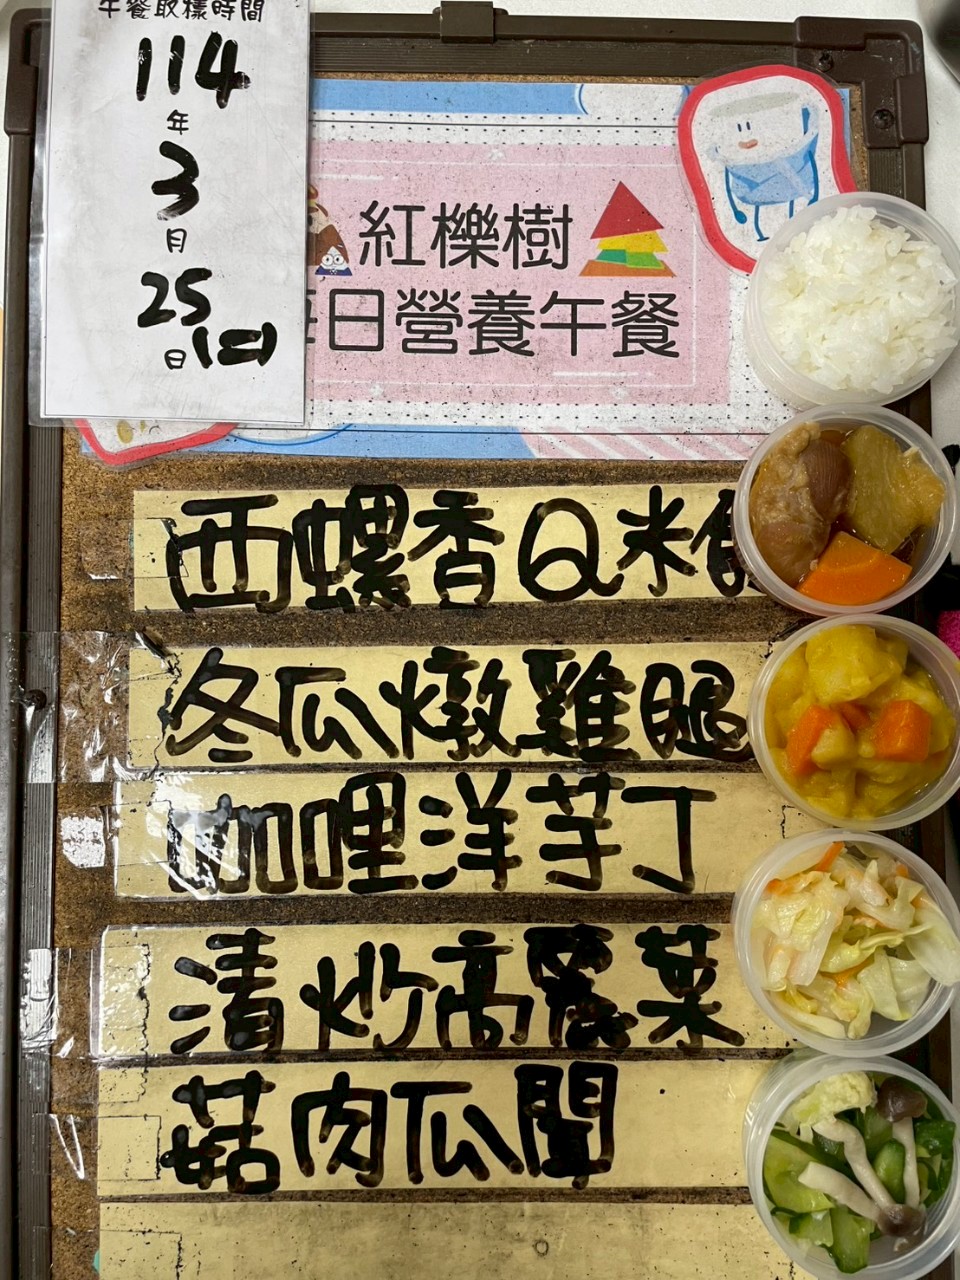 午餐取樣時間
114
年
3
月
25
日(二)
紅櫟樹
日營養午餐
西螺香Q米
冬瓜燉雞腿
咖哩洋芋丁
清炒高麗菜
菇肉瓜